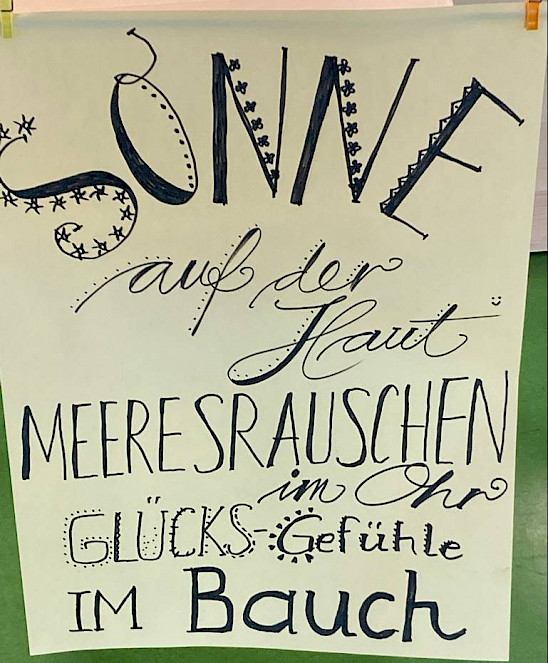 SONNE
auf der
Haut
MEERESRAUSCHEN
im Ohr
GLÜCKS-Gefühle
IM Bauch